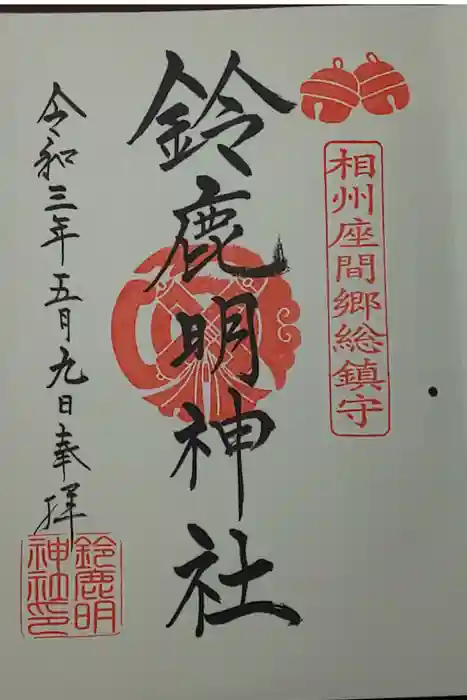 相州座間郷総鎮守
鈴鹿明神社
令和三年五月九日奉拝
鈴鹿明
神社印